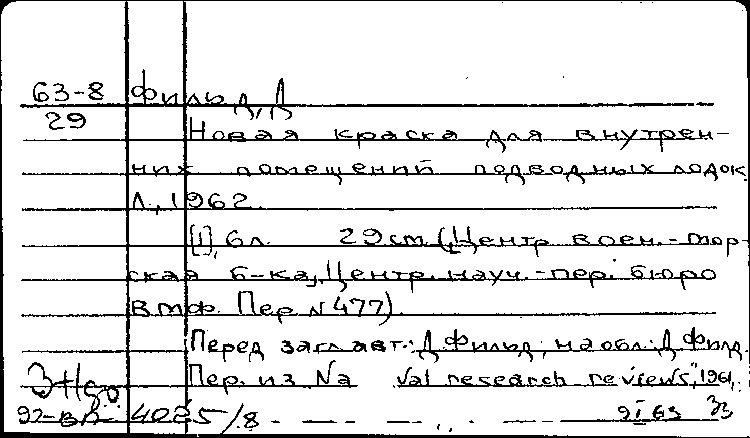 63-8 Фильд, Д
29
Новая краска для внутрен-
них помещений подводных лодок.
Л., 1962.
[1], 6 л. 29 см. (Центр. воен.-мор-
ская б-ка, Центр. науч.-пер. бюро
ВМФ. Пер. N 477).
Перед загл. авт.: Д Фильд, на обл.: Д Филд.
Пер. из Na val research reviews", 1961,
92-ВЛ 4025/8 9 I 63